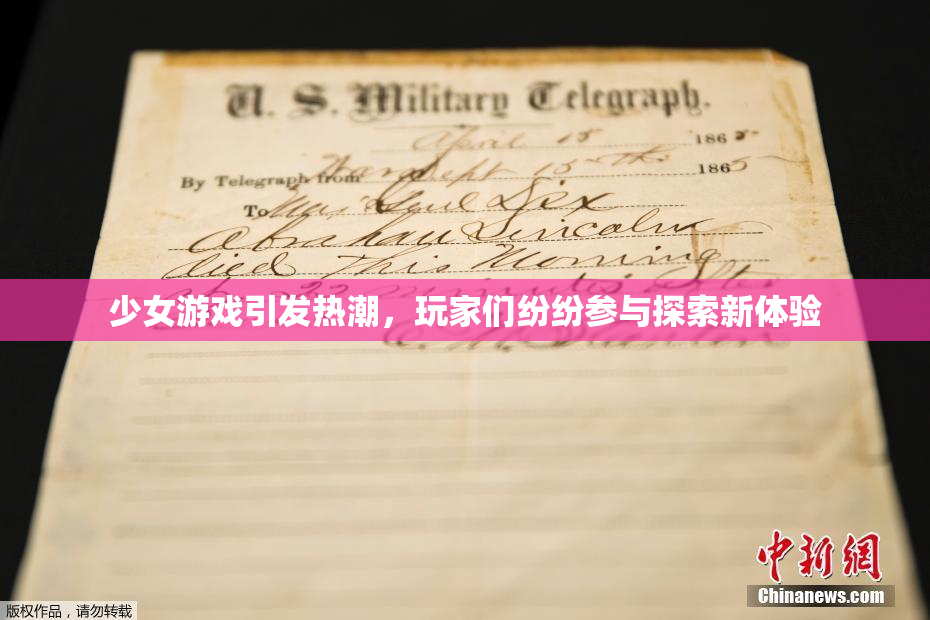 U. S. Military Telegraph.
April 15 1865
By Telegraph from War Dept 15th 1865
To Maj Genl Dix
Abraham Lincoln
died This Morning
22 minutes after
少女游戏引发热潮，玩家们纷纷参与探索新体验
中新网
Chinanews.com
版权作品，请勿转载